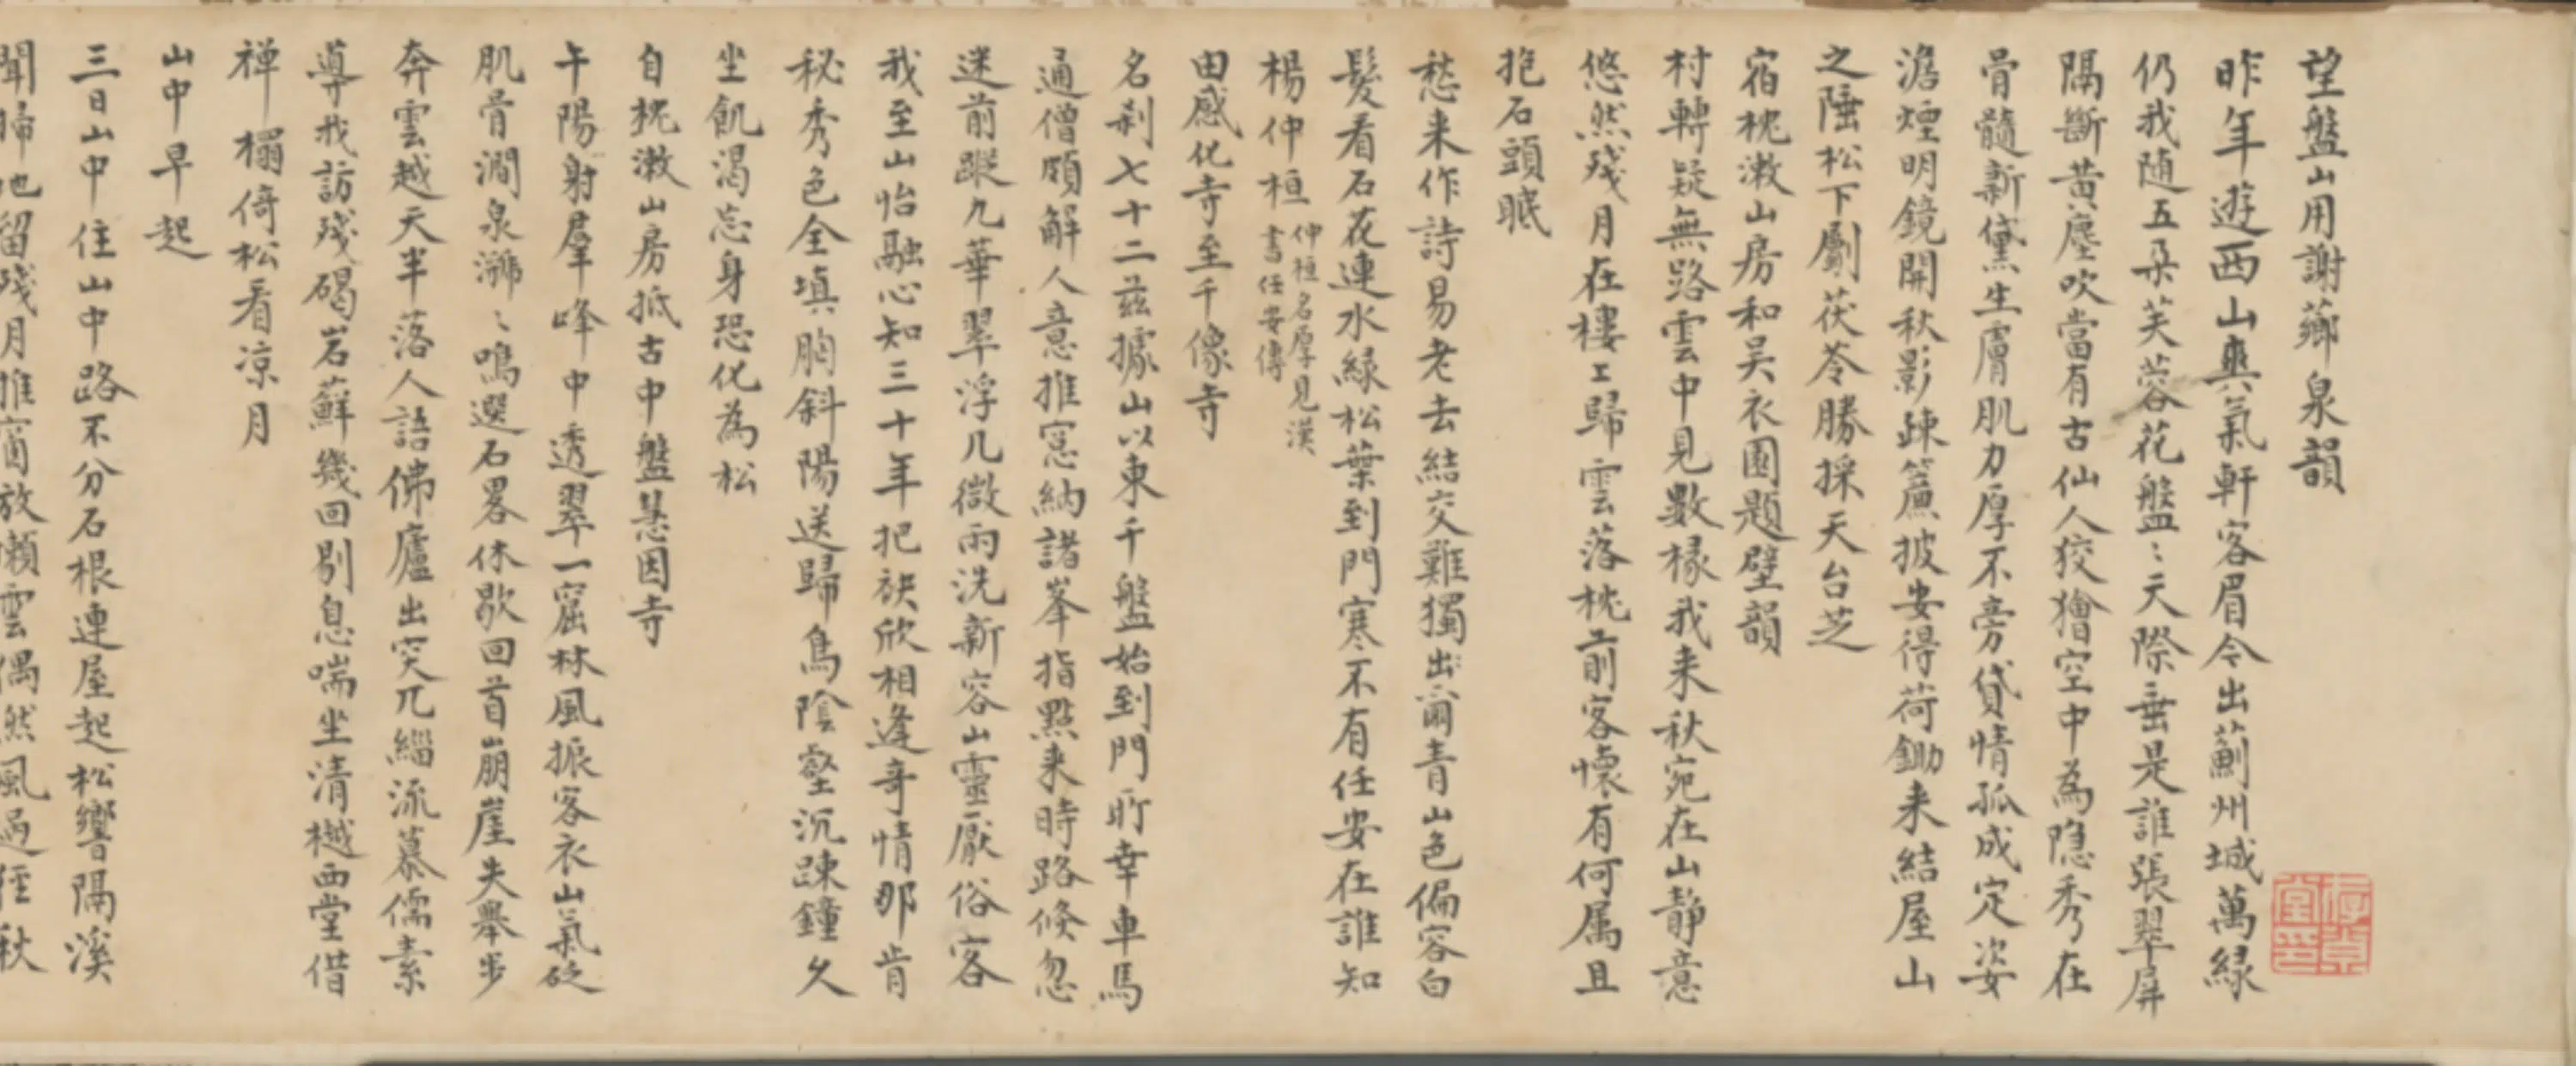 望盤山用謝薌泉韻
昨年遊西山爽氣軒客眉今出薊州城萬緑
仍我随五朵芙蓉花盤〻天際垂是誰張翠屏
隔斷黄塵吹當有古仙人狡獪空中為隐秀在
骨髓新黛生膚肌力厚不旁貸情孤成定姿
澹煙明鏡開秋影踈簾披安得荷鋤来結屋山
之陲松下劚茯苓勝採天台芝
宿枕漱山房和吴衣園題壁韻
村轉疑無路雲中見數椽我来秋宛在山静意
悠然殘月在樓上歸雲落枕前客懷有何属且
抱石頭眠
愁来作詩易老去結交難獨出爾青山色偏容白
髮看石花連水緑松葉到門寒不有任安在誰知
楊仲桓
仲桓名厚見漢
書任安傳
田感化寺至千像寺
名刹七十二茲據山以東千盤始到門所幸車馬
通僧頗解人意推窓納諸峯指點来時路倏忽
迷前蹤九華翠浮几微雨洗新容山靈厭俗客
我至山怡融心知三十年把袂欣相逢奇情那肯
秘秀色全填胸斜陽送歸鳥陰壑沉踈鐘久
坐飢渴忘身恐化為松
自枕漱山房抵古中盤慧因寺
午陽射羣峰中透翠一窟林風振客衣山氣砭
肌骨澗泉㶁〻鳴選石畧休歇回首崩崖失舉步
奔雲越天半落人語佛廬出突兀緇流慕儒素
導我訪殘碣岩蘚幾回剔息喘坐清樾西堂借
禅榻倚松看凉月
山中早起
三日山中住山中路不分石根連屋起松響隔溪
聞掃地留殘月推窗放嬾雲偶然風過徑秋